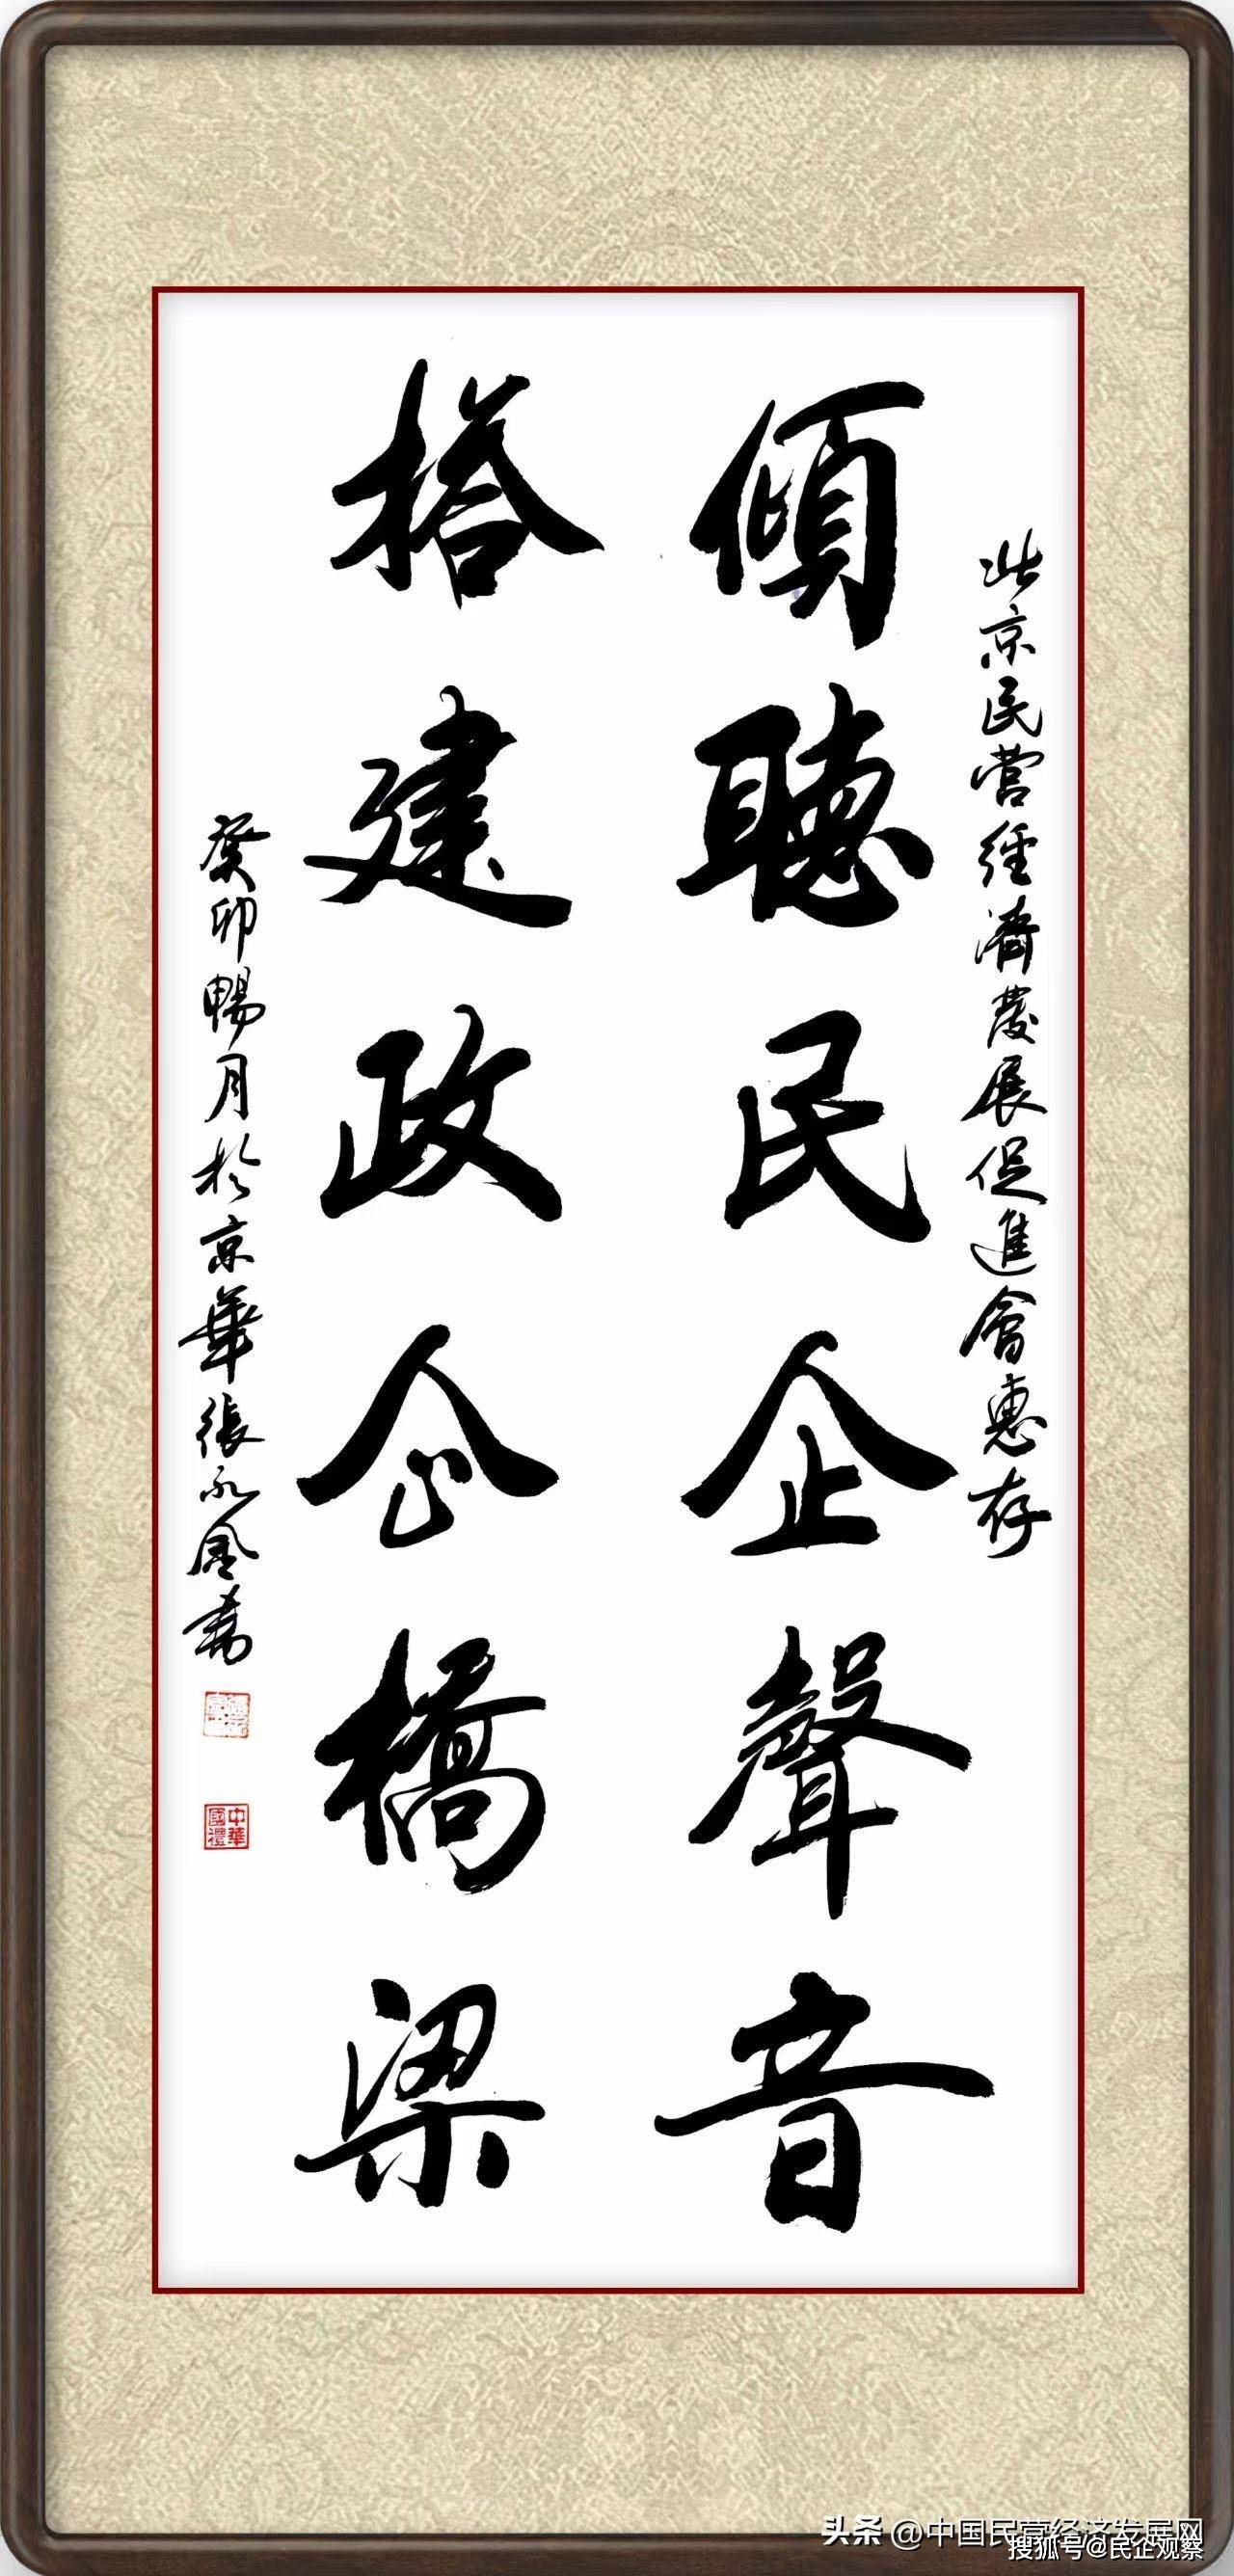 北京民营經濟發展促進會惠存
傾聽民企聲音
搭建政企橋梁
癸卯暢月於京華張永金書
中華國禮
头条 @中国民营经济发展网
搜狐号@民企观察